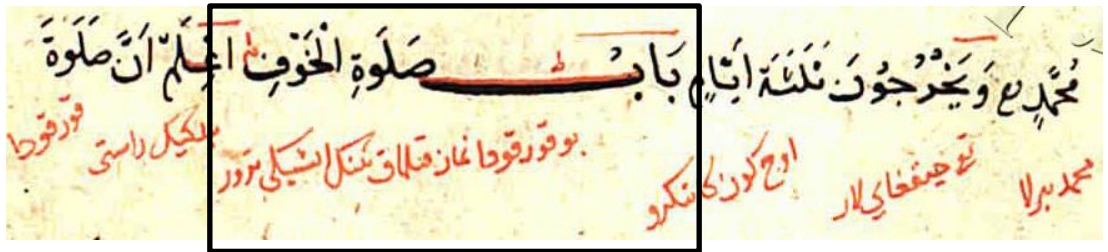 مُحَمَّدٍ رح وَيَخْرُجُونَ ثَلَثَةَ اَيَّامٍ بَابُ صَلَوةِ الْخَوْفِ اِعْلَمْ اَنَّ صَلَوةَ
محمد بيرلا تع جيقغاي لار اوج كون كا تنكرو بو قورقوجا نماز قلماق ننك ايشيكى تورور بلكيل راستى قورقوجا